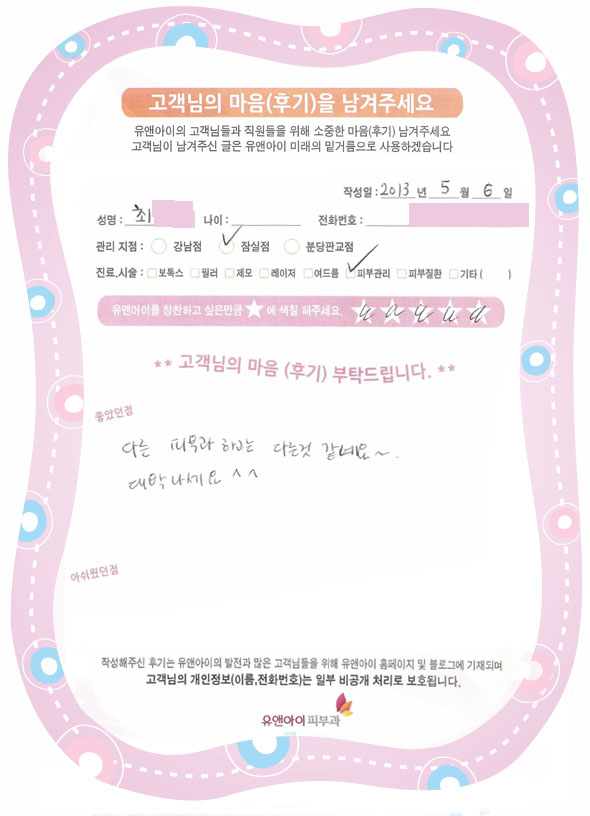 고객님의 마음(후기)을 남겨주세요
유앤아이의 고객님들과 직원들을 위해 소중한 마음(후기) 남겨주세요
고객님이 남겨주신 글은 유앤아이 미래의 밑거름으로 사용하겠습니다
작성일 : 2013 년 5 월 6 일
성명 : 최 나이 : 전화번호 :
관리 지점 : 강남점 잠실점 분당판교점
진료,시술 : 보톡스 필러 제모 레이저 여드름 피부관리 피부질환 기타 ( )
유앤아이를 칭찬하고 싶은만큼 ★ 에 색칠 해주세요.
** 고객님의 마음 (후기) 부탁드립니다. **
좋았던점
다른 피부과 하고는 다른것 같네요~.
대박나세요 ^^
아쉬웠던점
작성해주신 후기는 유앤아이의 발전과 많은 고객님들을 위해 유앤아이 홈페이지 및 블로그에 기재되며
고객님의 개인정보(이름,전화번호)는 일부 비공개 처리로 보호됩니다.
유앤아이피부과